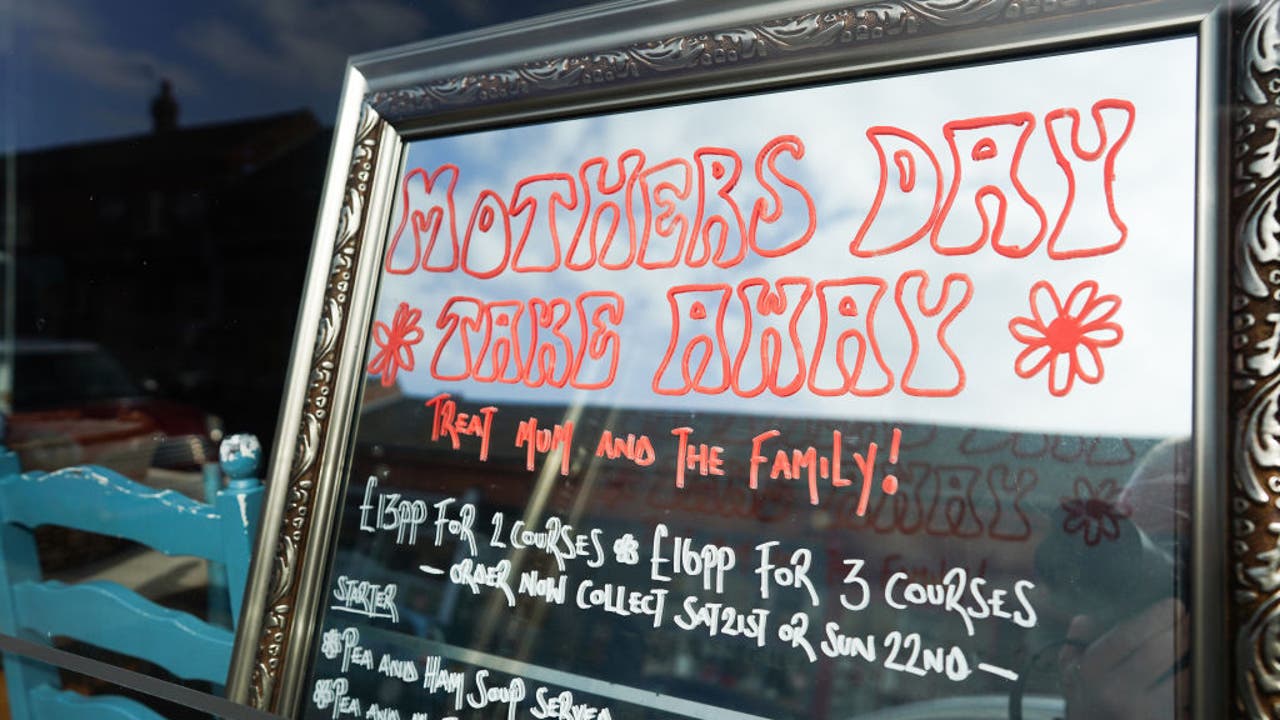 MOTHERS DAY
TAKE AWAY
TREAT MUM AND THE FAMILY!
£13PP FOR 2 COURSES * £16PP FOR 3 COURSES
- ORDER NOW COLLECT SAT 21ST OR SUN 22ND -
STARTER
*PEA AND HAM SOUP SERVED
*PEA AND